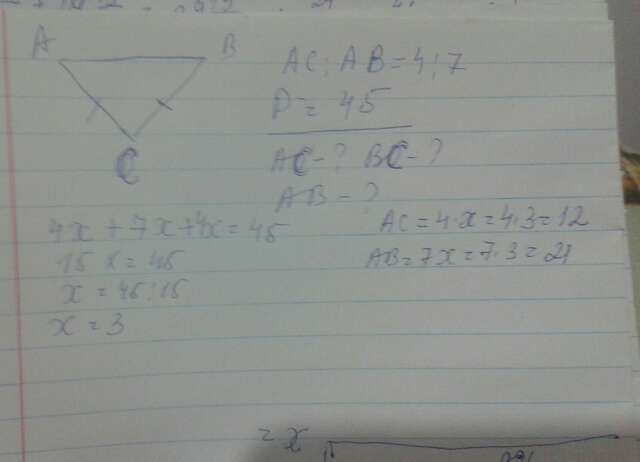 A B
C
AC : AB = 4 : 7
P = 45
AC - ? BC - ?
AB - ?
4x + 7x + 4x = 45
15x = 45
x = 45 : 15
x = 3
AC = 4·x = 4·3 = 12
AB = 7x = 7·3 = 21
= x